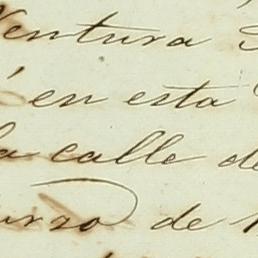 Ventura
en esta
la calle de
urzo de